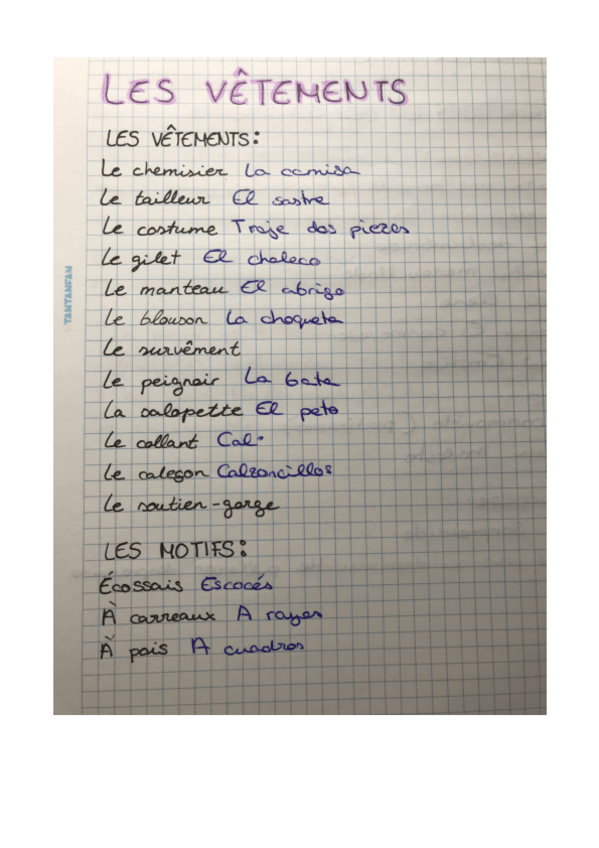 LES VÊTEMENTS
LES VÊTEMENTS:
Le chemisier La camisa
Le tailleur El sastre
Le costume Traje dos piezas
Le gilet El chaleco
Le manteau El abrigo
Le blouson La chaqueta
Le survêment
Le peignoir La bata
La salopette El peto
Le collant Cal.
Le caleçon Calzoncillos
Le soutien-gorge
LES MOTIFS:
Écossais Escocés
À carreaux A rayas
À pois A cuadros
TANTANFAN